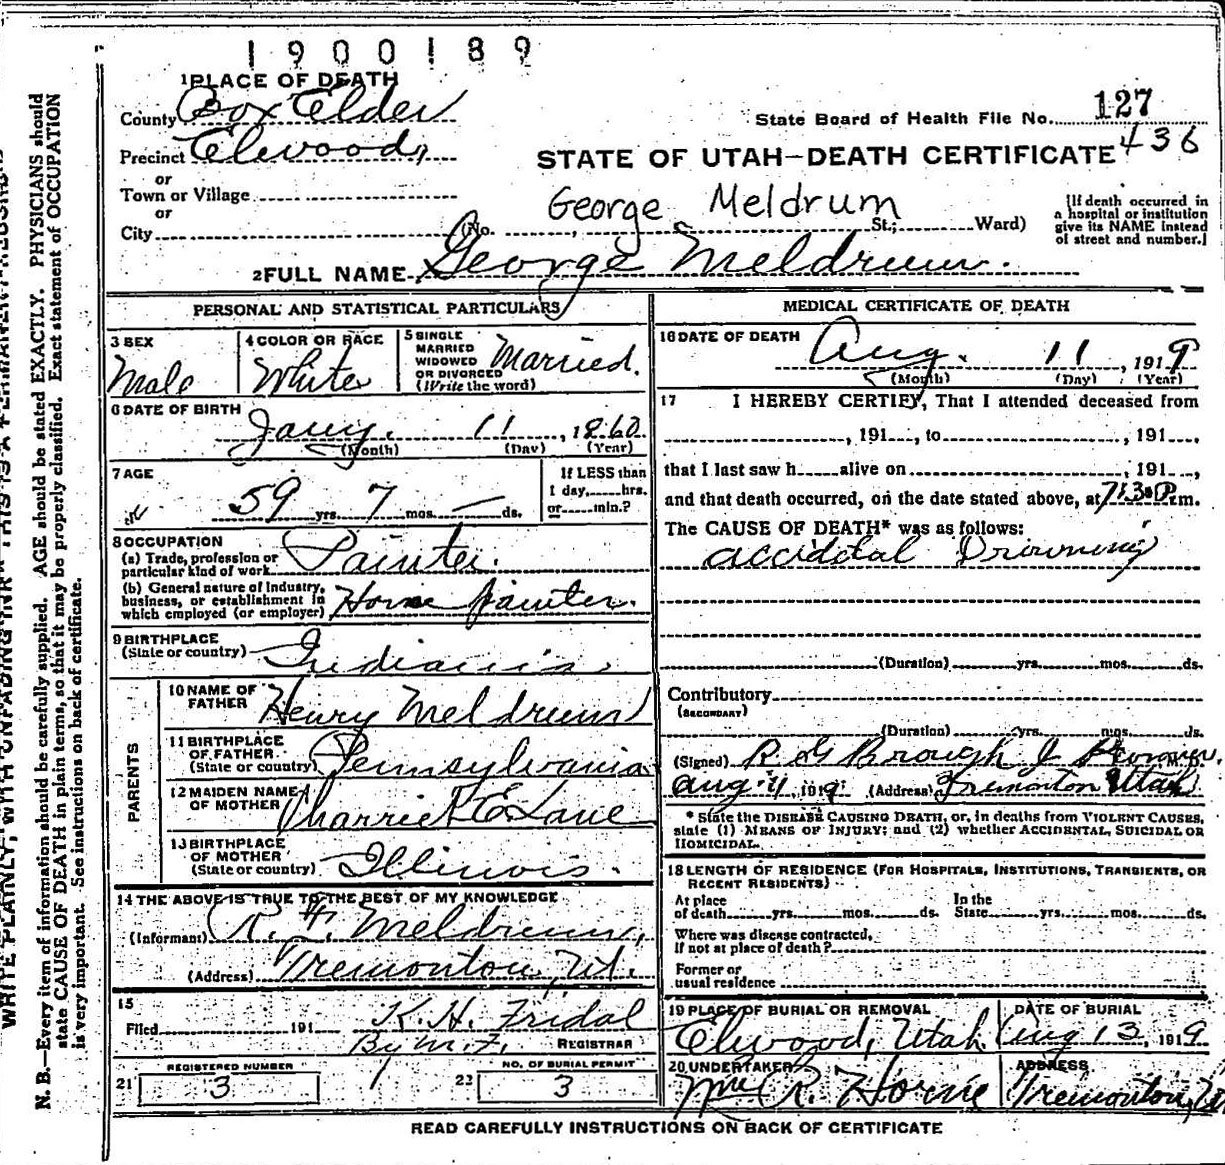 1900189
1 PLACE OF DEATH
County Box Elder
State Board of Health File No. 127
Precinct Elwood,
436
STATE OF UTAH—DEATH CERTIFICATE
or
Town or Village
or
George Meldrum
City (No. St.; Ward)
[If death occurred in
a hospital or institution
give its NAME instead
of street and number.]
2 FULL NAME George Meldrum.
PERSONAL AND STATISTICAL PARTICULARS
3 SEX
Male
4 COLOR OR RACE
White
5 SINGLE
MARRIED
WIDOWED
OR DIVORCED
(Write the word)
Married.
6 DATE OF BIRTH
Jany. 11, 1860
(Month) (Day) (Year)
7 AGE
59 yrs. 7 mos. — ds.
If LESS than
1 day, hrs.
or min.?
8 OCCUPATION
(a) Trade, profession or
particular kind of work Painter.
(b) General nature of industry,
business, or establishment in
which employed (or employer) painter.
9 BIRTHPLACE
(State or country) Indiania
PARENTS
10 NAME OF
FATHER Henry Meldrum
11 BIRTHPLACE
OF FATHER
(State or country) Pennsylvania
12 MAIDEN NAME
OF MOTHER Lane
13 BIRTHPLACE
OF MOTHER
(State or country) Illinois.
14 THE ABOVE IS TRUE TO THE BEST OF MY KNOWLEDGE
(Informant) Meldrum,
(Address) Tremonton, Ut.
15
Filed 191 K. H. Fridal
By M. F. REGISTRAR
REGISTERED NUMBER
21 3
NO. OF BURIAL PERMIT
22 3
MEDICAL CERTIFICATE OF DEATH
16 DATE OF DEATH
Aug. 11, 1919
(Month) (Day) (Year)
17 I HEREBY CERTIFY, That I attended deceased from
, 191 , to , 191 ,
that I last saw h alive on , 191 ,
and that death occurred, on the date stated above, at 7:30 P.m.
The CAUSE OF DEATH* was as follows:
accidetal Drowning
(Duration) yrs. mos. ds.
Contributory
(SECONDARY)
(Duration) yrs. mos. ds.
(Signed) R G Brough M.D.
Aug. 1919 (Address) Tremonton Utah
* State the DISEASE CAUSING DEATH, or, in deaths from VIOLENT CAUSES,
state (1) MEANS OF INJURY; and (2) whether ACCIDENTAL, SUICIDAL OR
HOMICIDAL.
18 LENGTH OF RESIDENCE (FOR HOSPITALS, INSTITUTIONS, TRANSIENTS, OR
RECENT RESIDENTS)
At place In the
of death yrs. mos. ds. State yrs. mos. ds.
Where was disease contracted,
If not at place of death?
Former or
usual residence
19 PLACE OF BURIAL OR REMOVAL
Elwood, Utah
DATE OF BURIAL
Aug 13, 1919
20 UNDERTAKER
Wm R. Horne
ADDRESS
Tremonton,
READ CAREFULLY INSTRUCTIONS ON BACK OF CERTIFICATE
N. B.—Every item of information should be carefully supplied. AGE should be stated EXACTLY. PHYSICIANS should
state CAUSE OF DEATH in plain terms, so that it may be properly classified. Exact statement of OCCUPATION
is very important. See instructions on back of certificate.